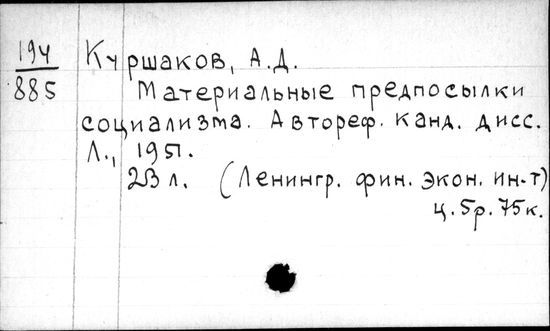 194
885
Куршаков, А.Д.
Материальные предпосылки
социализма. Автореф. канд. дисс.
Л., 1951.
23 л. (Ленингр. фин. экон. ин-т)
ц. 5р. 75к.